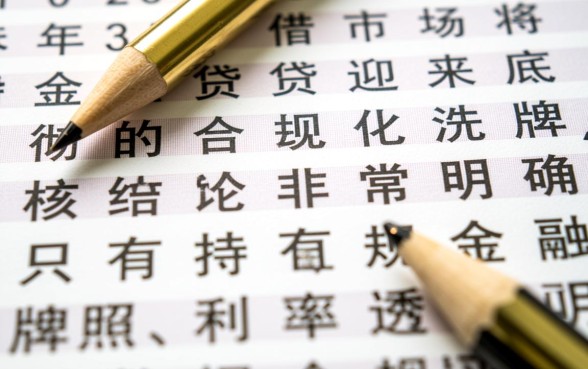 年3 借市场将
金 贷贷迎来底
彻的合现化洗牌
核结论非常明确
只有持 金融
牌照、利率透